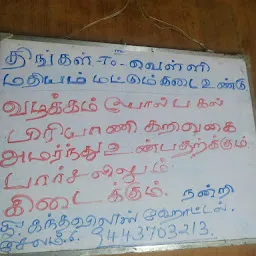 திங்கள் To - வெள்ளி
மதியம் மட்டும் கடை உண்டு
வழக்கம் போல் பகல்
பிரியாணி கறிவகை
அமர்ந்து உண்பதற்க்கும்
பார்சலிலும்
கிடைக்கும். நன்றி
ஹோட்டல்.
9443703213.